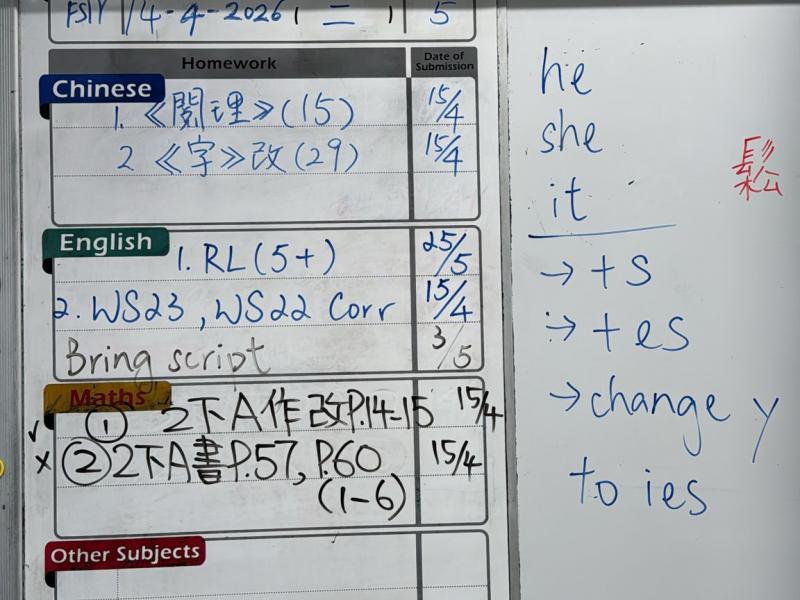 14-4-2026 ( 二 ) 5
Homework Date of Submission
Chinese
1. 《閱理》(15) 15/4
2 《字》改(29) 15/4
English
1. RL(5+) 25/5
2. WS23, WS22 Corr 15/4
Bring script 3/5
Maths
✓ ① 2下A作改P.14-15 15/4
x ② 2下A書P.57, P.60 15/4
(1-6)
Other Subjects
he
she
it
→ +s
→ +es
→ change y
to ies
鬆